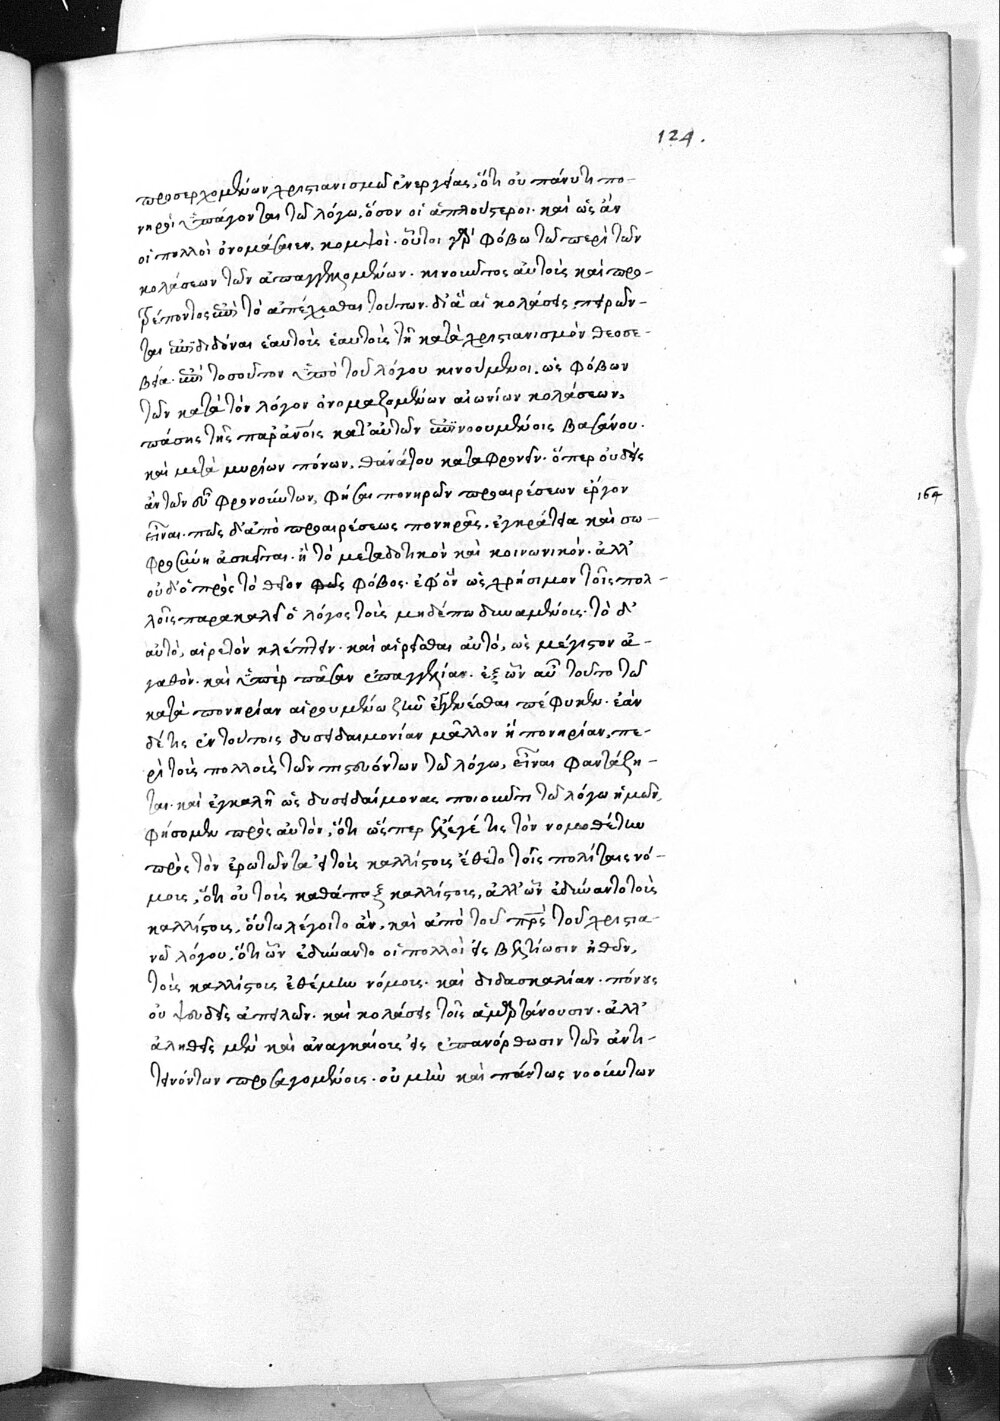 124.
προσερχομένων χριστιανισμῶ ἐνεργείας, ὅτι οὐ πάνυ τι πο-
νηροὶ ὑπάγονται τῶ λόγω, ὅσον οἱ ἁπλούστεροι. καὶ ὡς ἂν
οἱ πολλοὶ ὀνομάσαιεν, κομψοί. οὗτοι γὰρ φόβω τῶ περὶ τῶν
κολάσεων τῶν ἀπαγγελλομένων. κινοῦντος αὐτοὺς καὶ προ-
τρέποντος ἐπὶ τὸ ἀπέχεσθαι τούτων. δι' ἃ αἱ κολάσεις, πειρῶν-
ται ἐπιδιδόναι ἑαυτοὺς ἑαυτοὺς τῆ κατὰ χριστιανισμὸν θεοσε-
βεία. ἐπὶ τοσοῦτον ὑπὸ τοῦ λόγου κινούμενοι. ὡς φόβων
τῶν κατὰ τὸν λόγον ὀνομαζομένων αἰωνίων κολάσεων,
πάσης τῆς παρ' ἀνοις κατ' αὐτῶν ἐπινοουμένοις βασάνου.
καὶ μετὰ μυρίων πόνων, θανάτου καταφρονεῖν. ὅπερ οὐδεὶς
ἂν τῶν εὖ φρονούντων, φήσαι πονηρῶν προαιρέσεων ἔργον
εἶναι. πῶς δ' ἀπὸ προαιρέσεως πονηρᾶς, ἐγκράτεια καὶ σω-
φροσύνη ἀσκεῖται. ἢ τὸ μεταδοτικὸν καὶ κοινωνικόν. ἀλλ'
οὐδ' ὁ πρὸς τὸ θεῖον φόβος. ἐφ' ὃν ὡς χρήσιμον τοῖς πολ-
λοῖς παρακαλεῖ ὁ λόγος τοὺς μηδέπω δυναμένοις. τὸ δι'
αὐτὸ, αἱρετὸν βλέπειν. καὶ αἱρεῖσθαι αὐτὸ, ὡς μέγιστον ἀ-
γαθὸν. καὶ ὑπὲρ πᾶσαν ἐπαγγελίαν. ἐξ ὧν αὖ τοῦτο τῶ
κατὰ πονηρίαν αἱρουμένω ζῆν ἐγγενέσθαι πέφυκεν. ἐὰν
δέ τις ἐν τούτοις δυσειδαιμονίαν μᾶλλον ἢ πονηρίαν, πε-
ρὶ τοὺς πολλοὺς τῶν πιστευόντων τῶ λόγω, εἶναι φαντάζη-
ται. καὶ ἐγκαλῆ ὡς δυσειδαίμονας ποιοῦντι τῶ λόγω ἡμῶν,
φήσομεν πρὸς αὐτὸν, ὅτι ὥσπερ ἔλεγέ τις τὸν νομοθέτων
πρὸς τὸν ἐρωτῶντα εἰ τοὺς καλλίστους ἔθετο τοῖς πολίταις νό-
μοις, ὅτι οὐ τοὺς καθάπαξ καλλίστοις, ἀλλ' ὧν ἐδύναντο τοὺς
καλλίστους, οὕτω λέγοιτο ἂν, καὶ ἀπὸ τοῦ πρς τοῦ χριστια-
νῶ λόγου, ὅτι ὧν ἐδύναντο οἱ πολλοὶ εἰς βελτίωσιν ἠθῶν,
τοὺς καλλίστους ἐθέμην νόμοις. καὶ διδασκαλίαν. πόνους
οὐ ψευδεῖς ἀπειλῶν. καὶ κολάσεις τοῖς ἁμαρτάνουσιν. ἀλλ'
ἀληθεῖς μὲν καὶ ἀναγκαίοις εἰς ἐπανόρθωσιν τῶν ἀντι-
τεινόντων προσαγομένοις. οὐ μὴν καὶ πάντως νοούντων
164